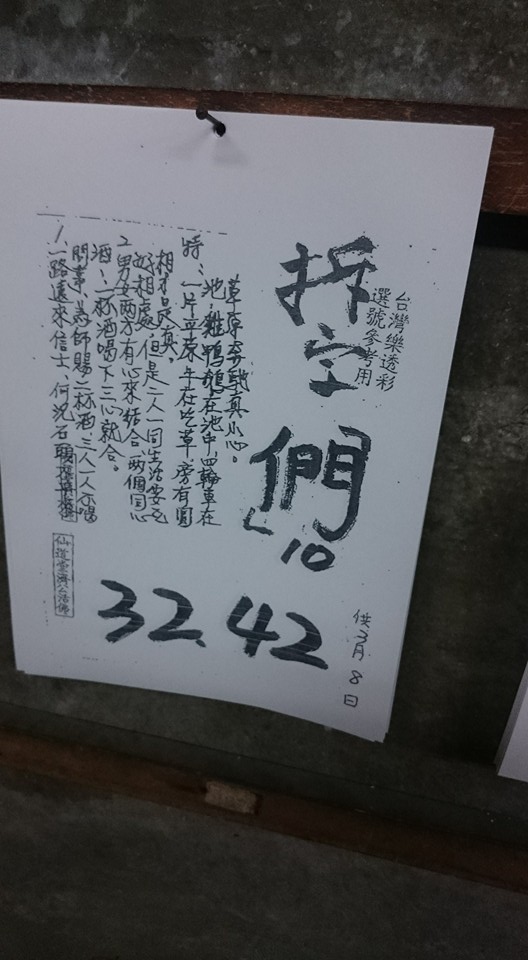 台灣樂透彩
選號參考用
拆字
們
10
32.42
供3月8日
1、一路遠來信士,何況石
問事,為師賜二杯酒三人一人不喝
酒,一杯酒喝下三心就合。
2男女兩方有心來結合,兩個同心
好相處,但是二人一同生活要互
相才是真。
特:一片平原牛在吃草,旁有圓
池,雞鴨鵝在池中,四輪車在
草原奔馳真小心。
仙道堂濟公活佛